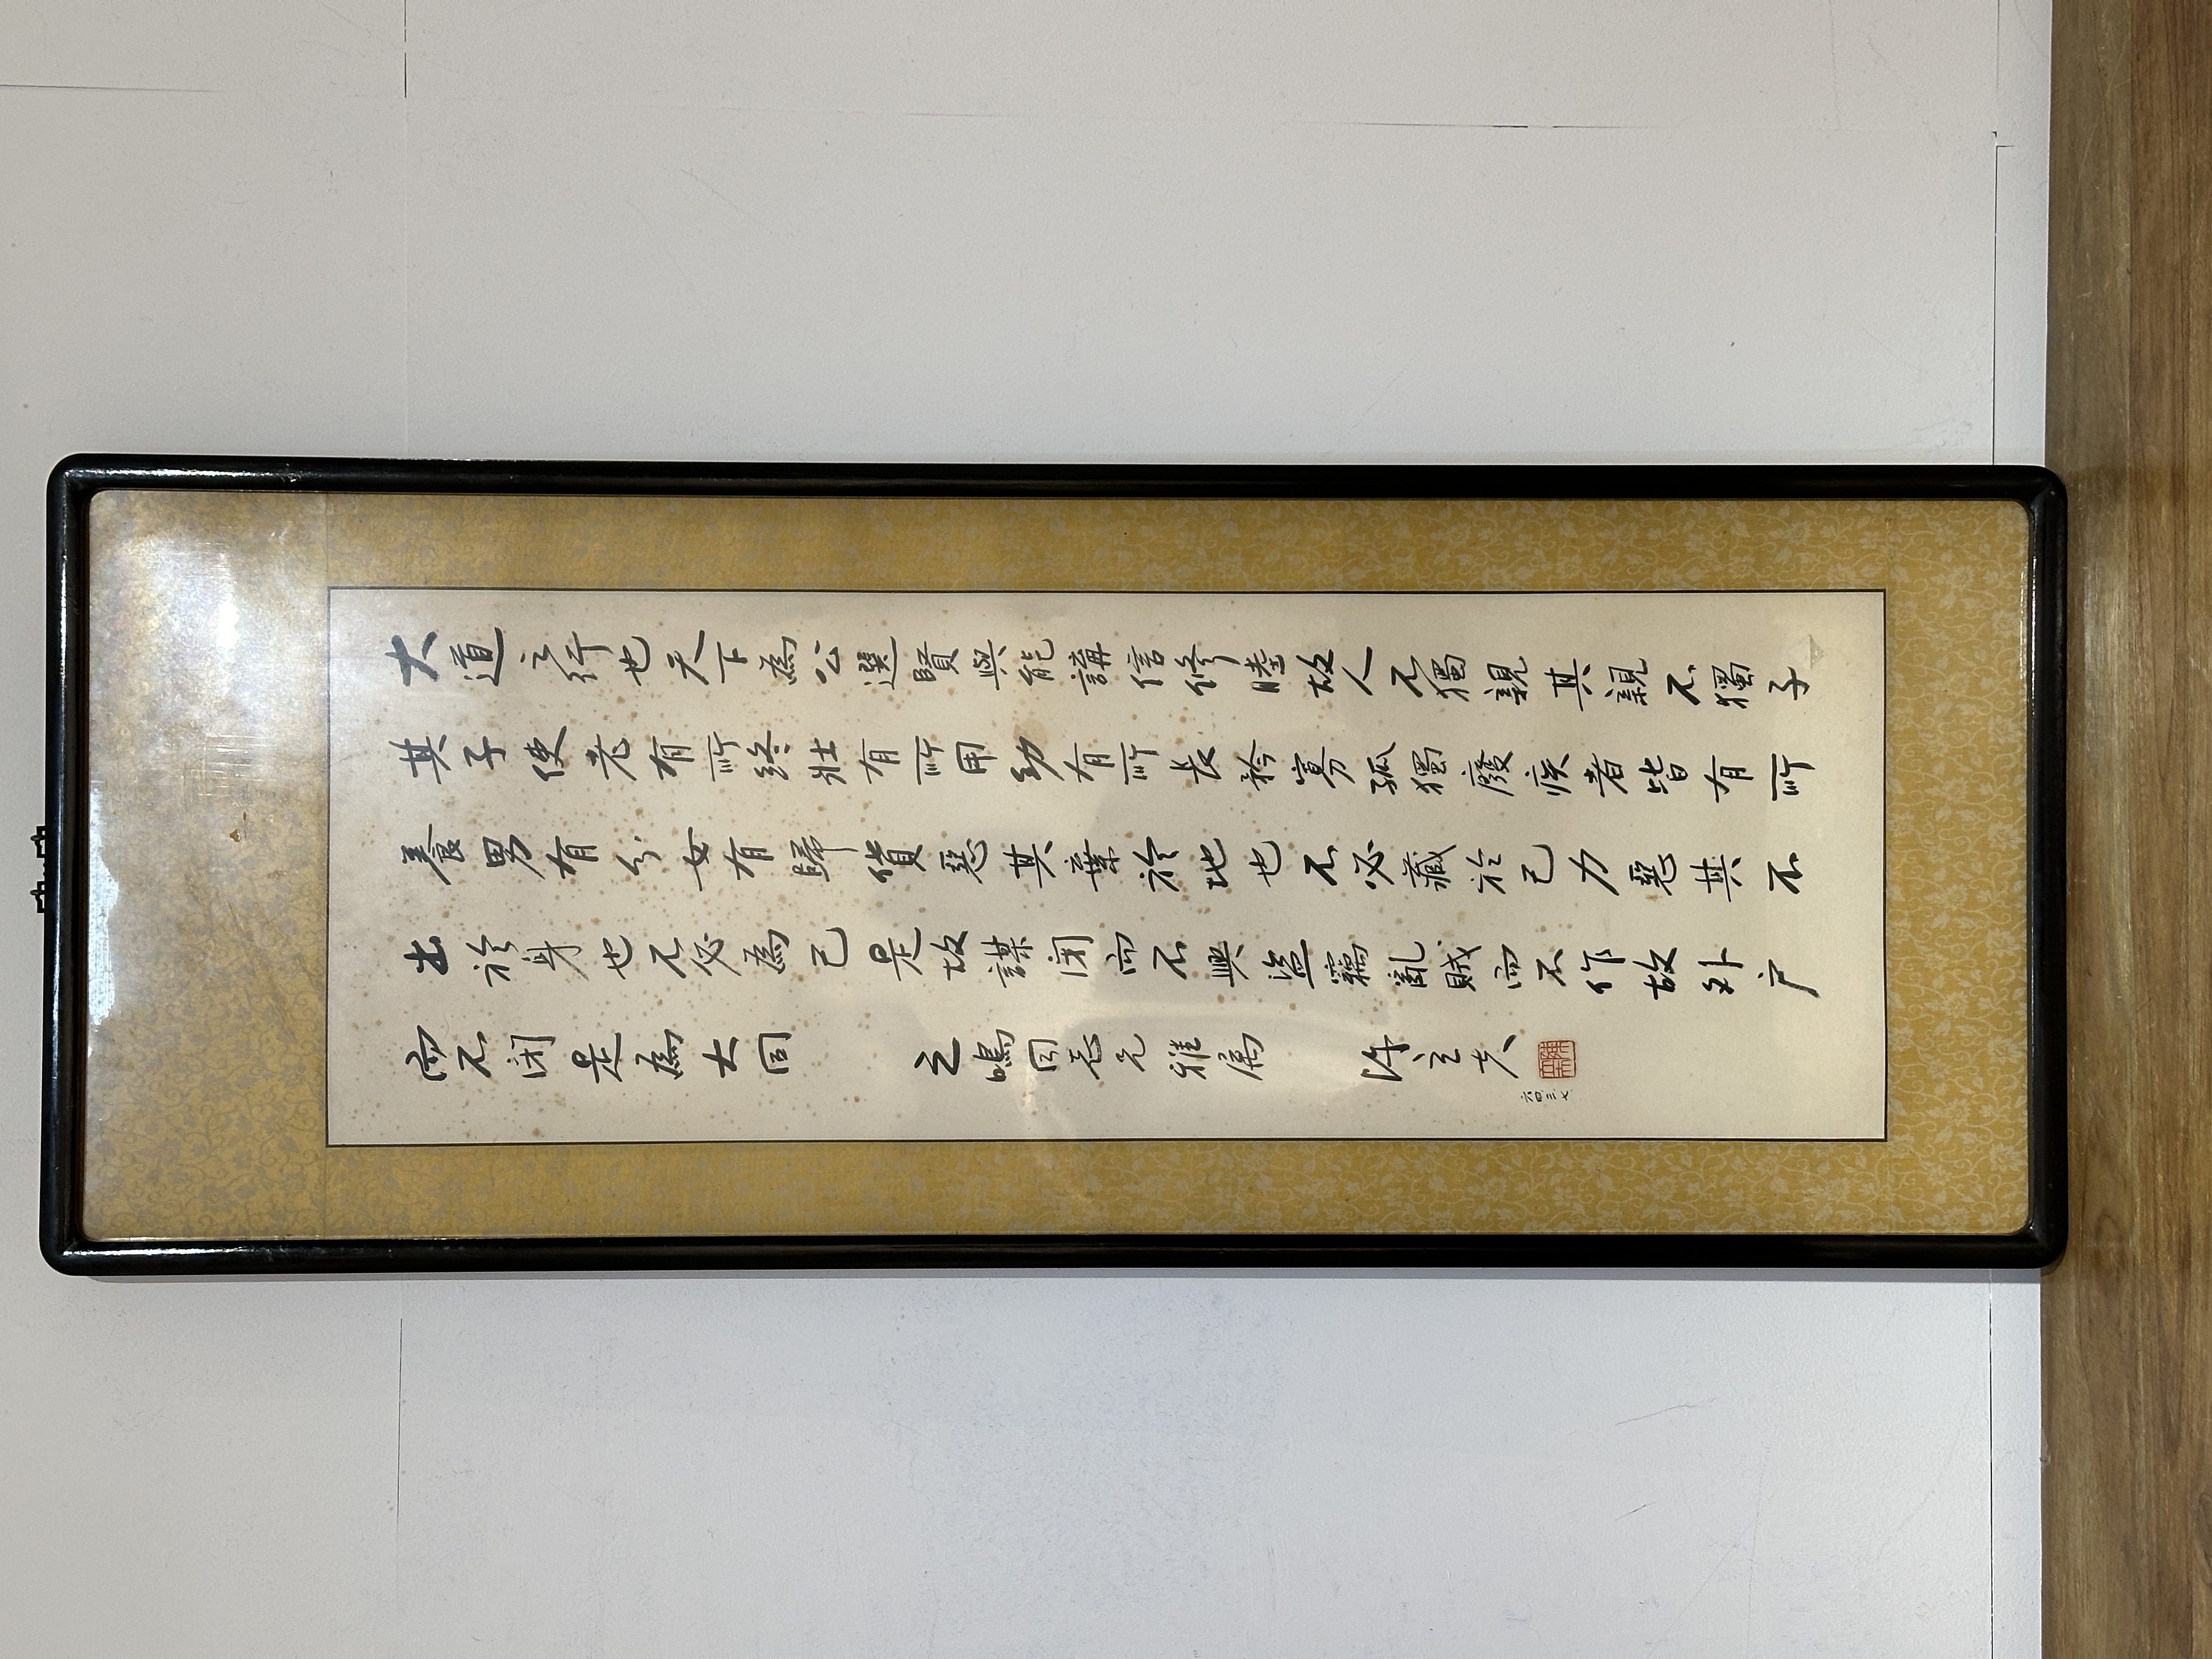 大道之行也天下為公選賢與能講信修睦故人不獨親其親不獨子
其子使老有所終壯有所用幼有所長矜寡孤獨廢疾者皆有所
養男有分女有歸貨惡其棄於地也不必藏於己力惡其不
出於身也不必為己是故謀閉而不興盜竊亂賊而不作故外户
而不閉是為大同
之鳴同志兄雅屬
陳立夫
六四三七